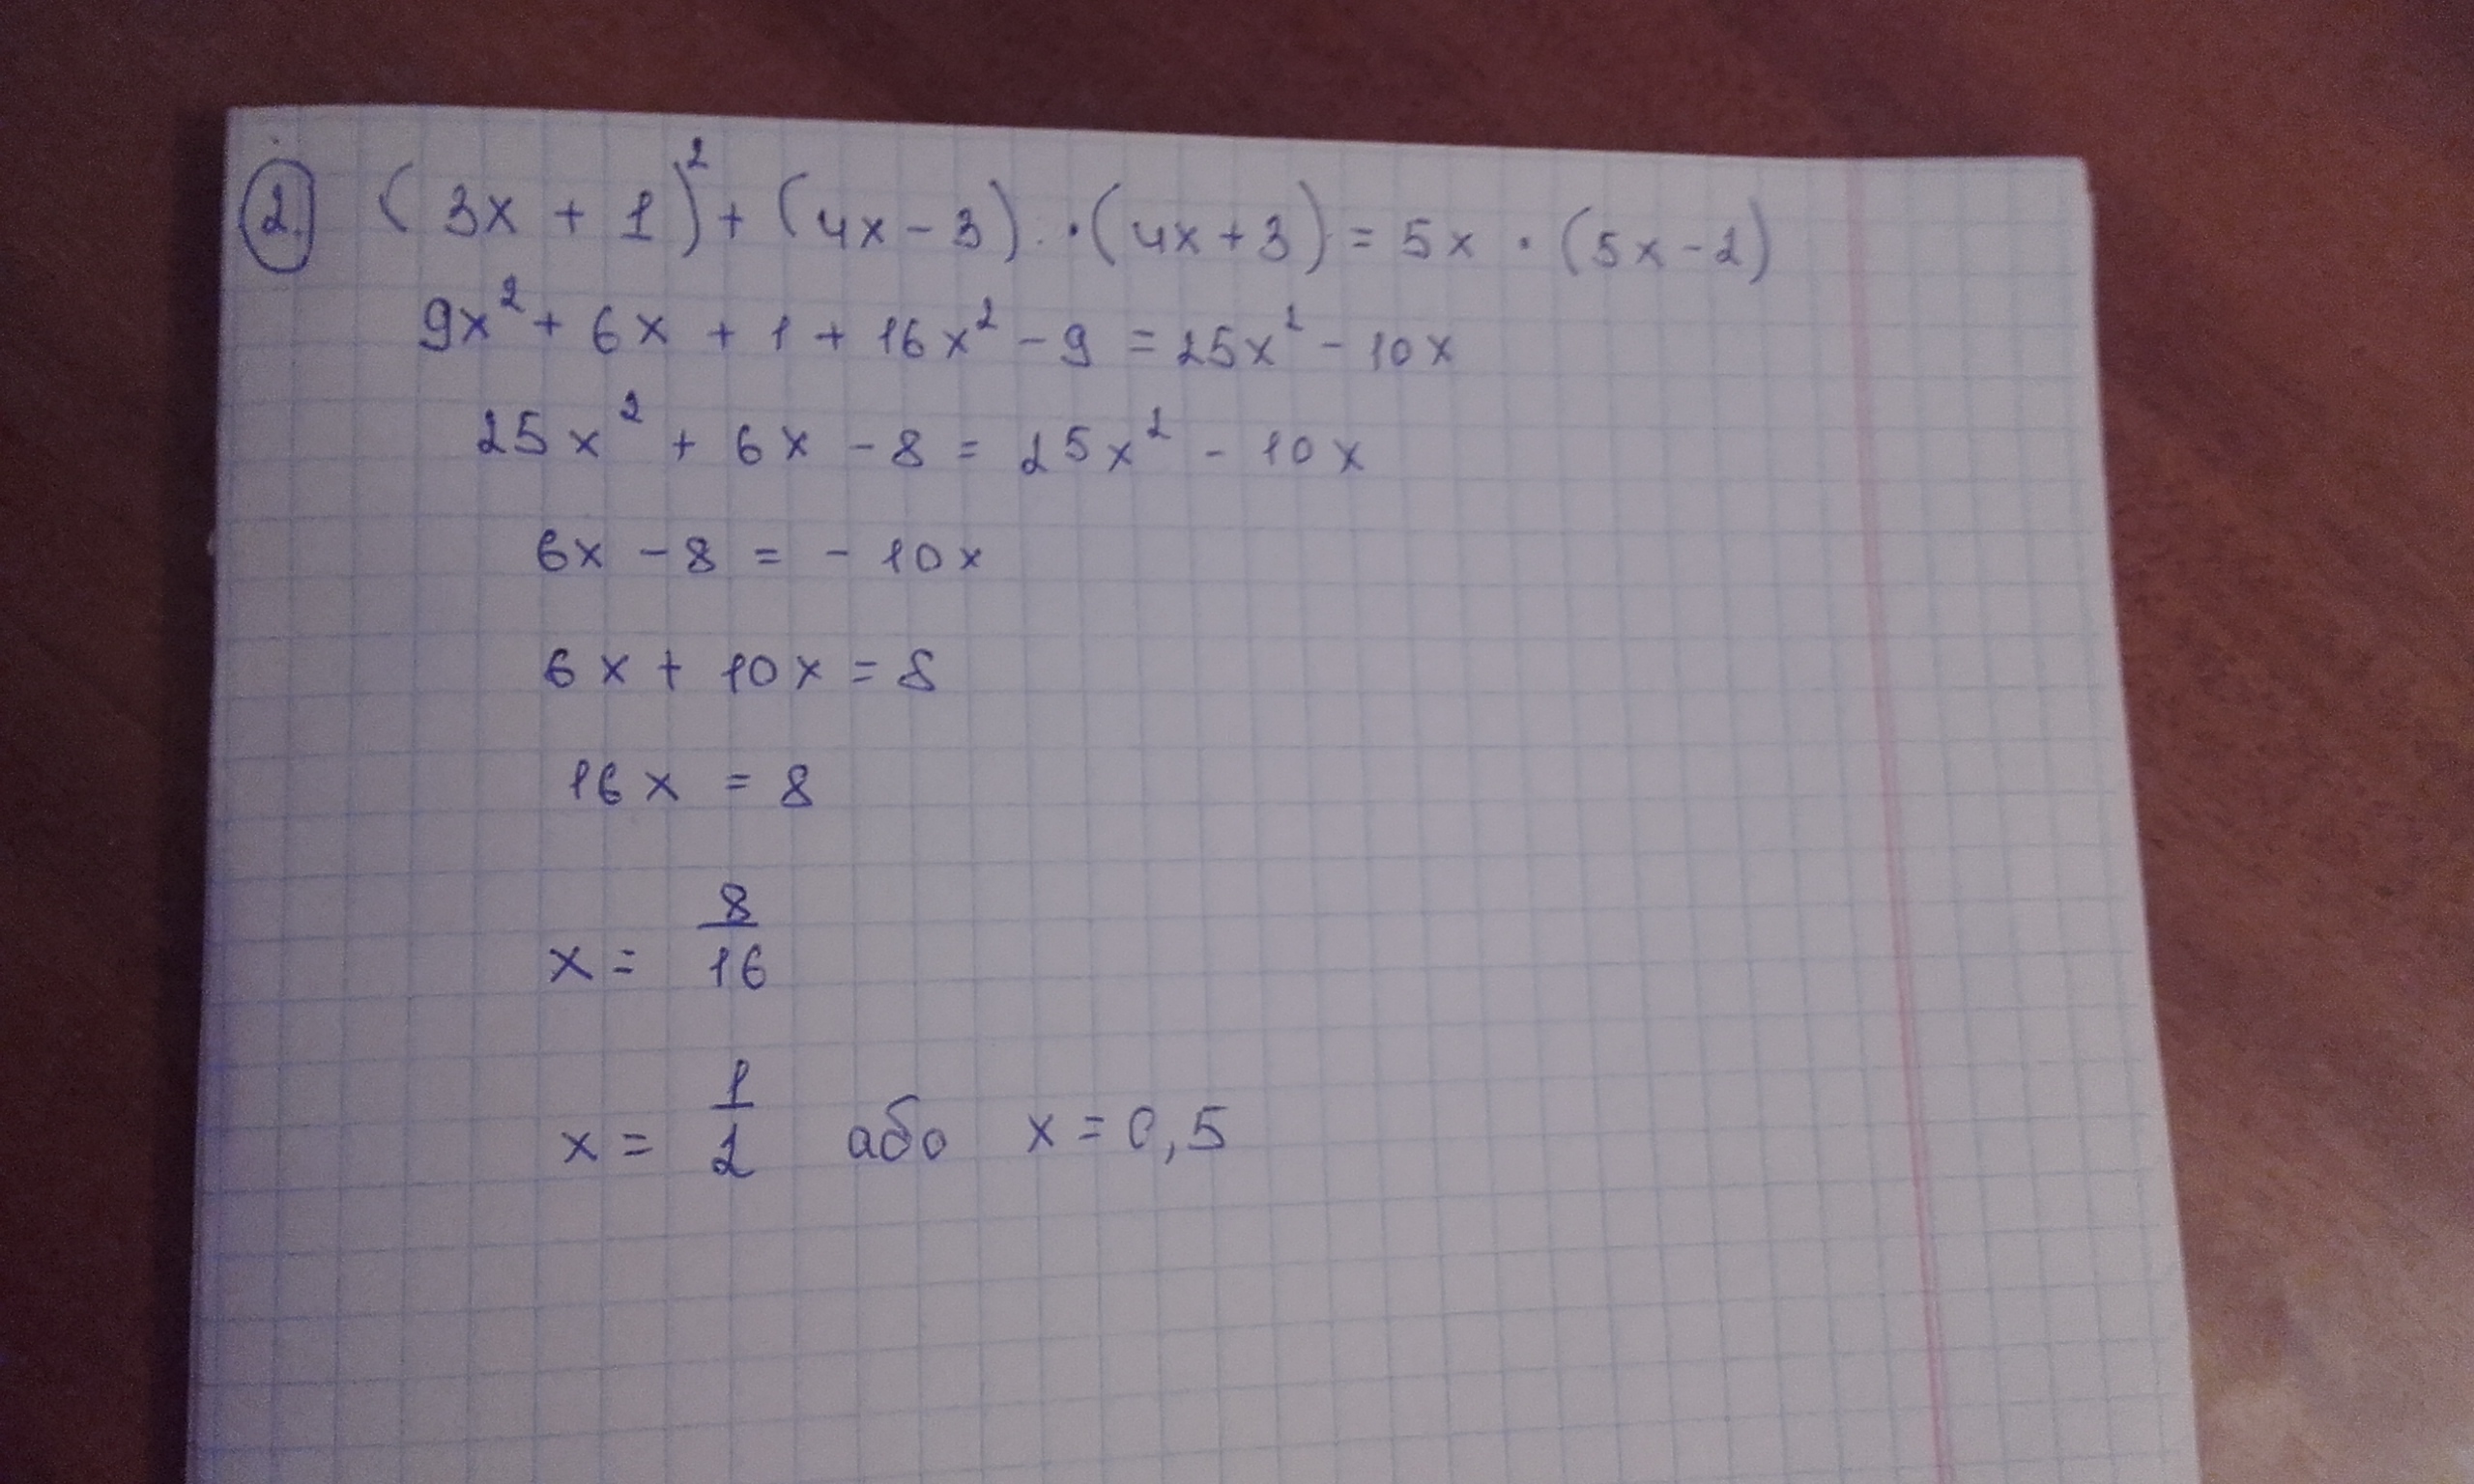 2. (3x + 1)² + (4x - 3) · (4x + 3) = 5x · (5x - 2)
9x² + 6x + 1 + 16x² - 9 = 25x² - 10x
25x² + 6x - 8 = 25x² - 10x
6x - 8 = - 10x
6x + 10x = 8
16x = 8
x = 8/16
x = 1/2 або x = 0,5